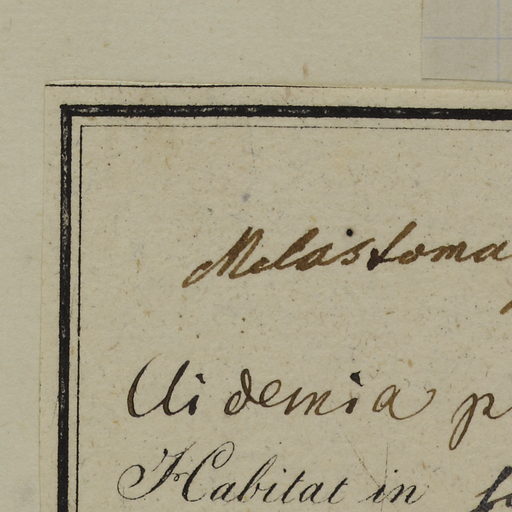 Melastoma
Clidemia p
Habitat in